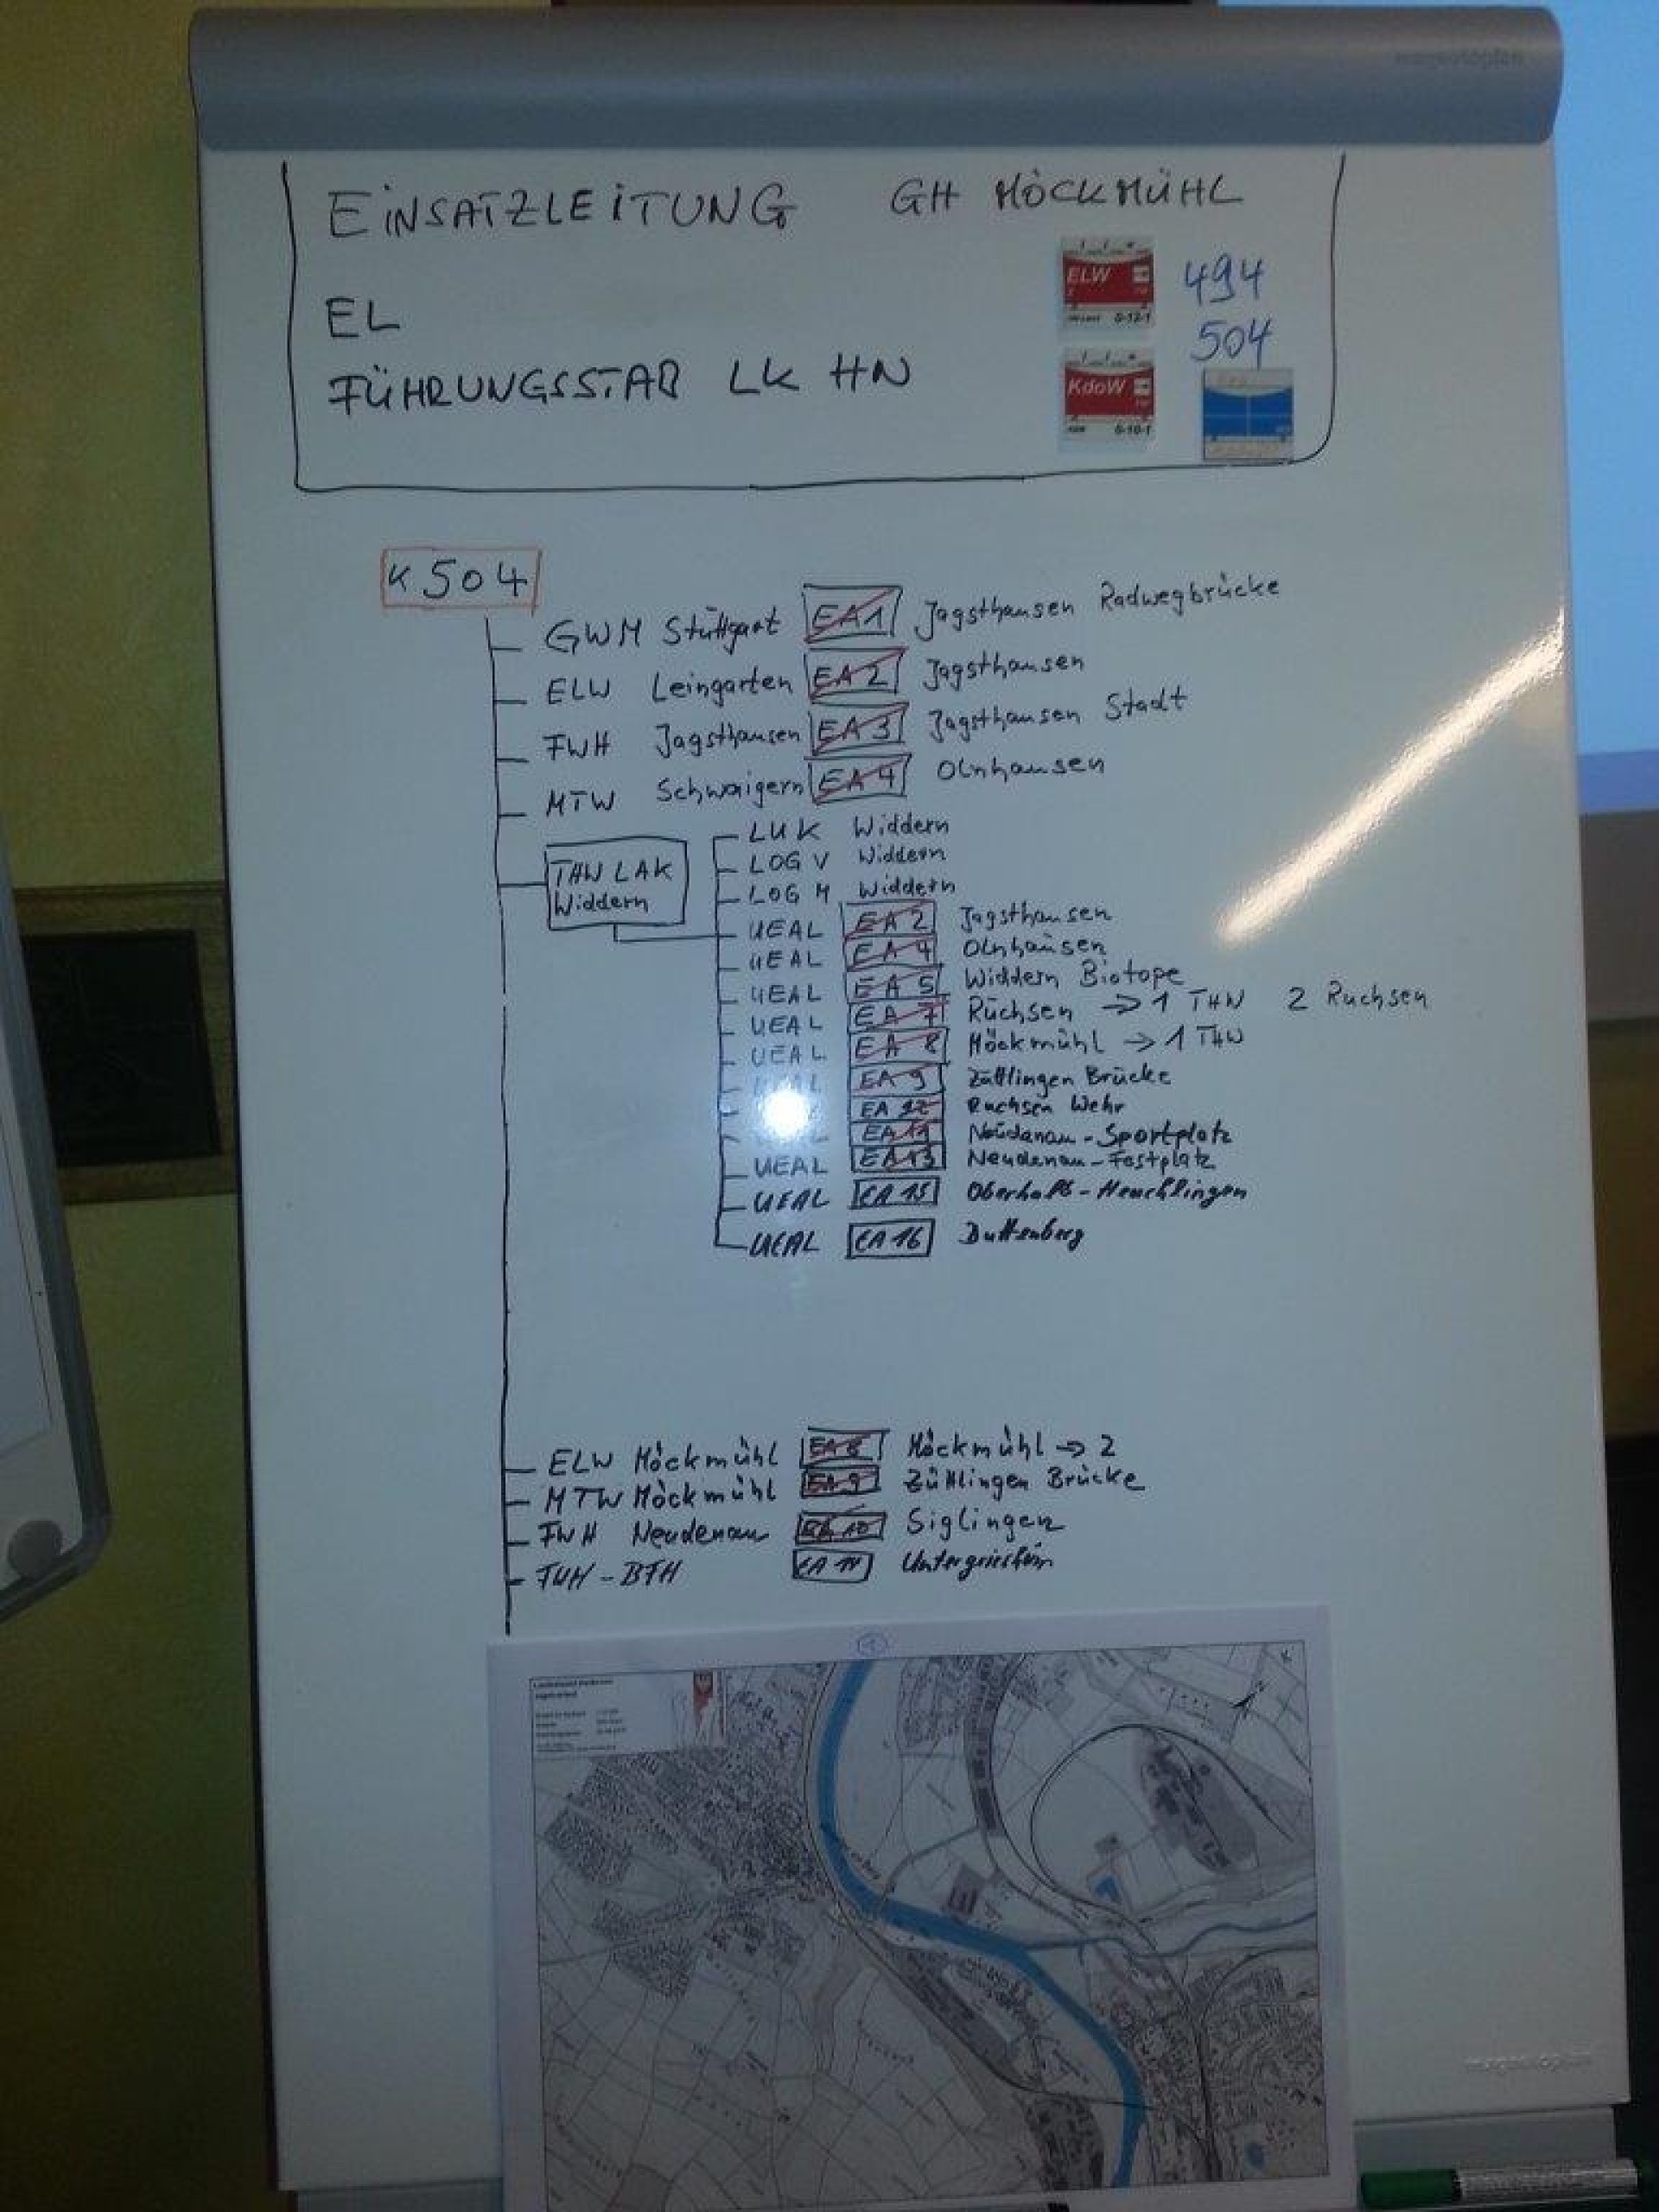 magnetoplan
EINSATZLEITUNG GH MÖCKMÜHL
ELW 494
0-12-1
EL 504
FÜHRUNGSSTAB LK HN KdoW
0-10-1
K 504
GWM Stuttgart EA1 Jagsthausen Radwegbrücke
ELW Leingarten EA2 Jagsthausen
FWH Jagsthausen EA3 Jagsthausen Stadt
MTW Schwaigern EA4 Olnhausen
THW LAK
Widdern
LUK Widdern
LOG V Widdern
LOG M Widdern
UEAL EA2 Jagsthausen
UEAL EA4 Olnhausen
UEAL EA5 Widdern Biotope
UEAL EA7 Ruchsen → 1 THW 2 Ruchsen
UEAL EA8 Möckmühl → 1 THW
EA9 Züttlingen Brücke
EA 12 Ruchsen Wehr
EA11 Neudenau-Sportplatz
UEAL EA13 Neudenau-Festplatz
UEAL EA15 Oberhalb-Heuchlingen
UEAL EA16 Duttenberg
ELW Möckmühl EA8 Möckmühl → 2
MTW Möckmühl EA9 Züttlingen Brücke
FWH Neudenau EA 10 Siglingen
FWH-BFH EA 14 Untergriesheim
magnetoplan